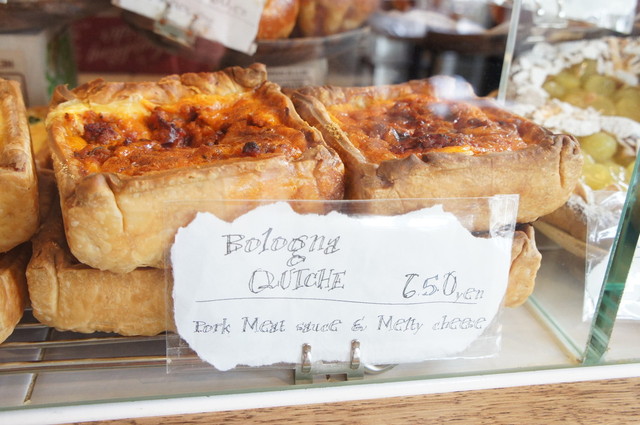 Bologna
QUICHE 650yen
Pork Meat sauce & Melty cheese